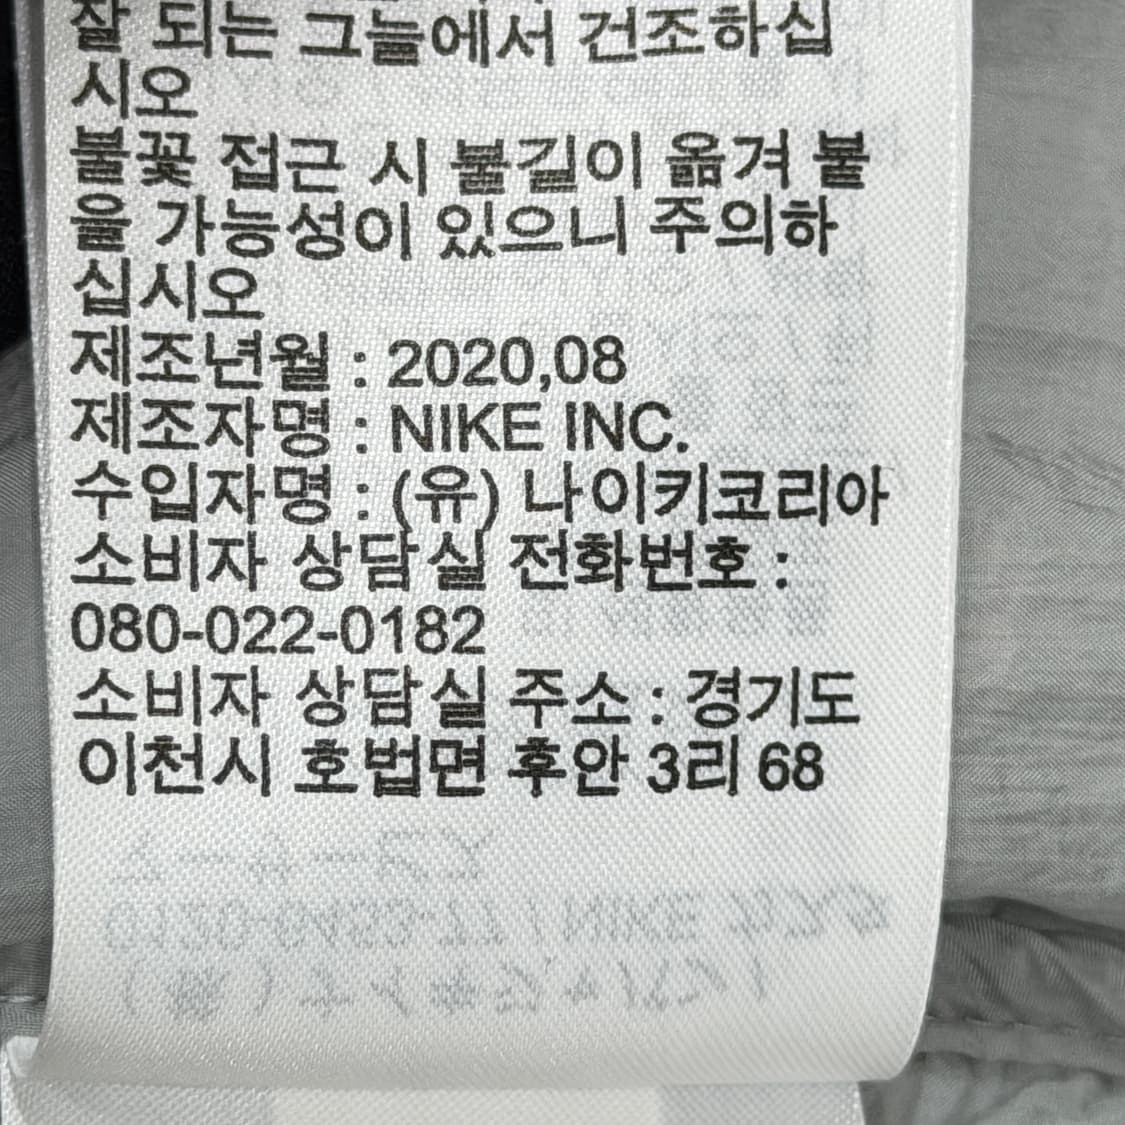 잘 되는 그늘에서 건조하십
시오
불꽃 접근 시 불길이 옮겨 붙
을 가능성이 있으니 주의하
십시오
제조년월 : 2020,08
제조자명 : NIKE INC.
수입자명 : (유) 나이키코리아
소비자 상담실 전화번호 :
080-022-0182
소비자 상담실 주소 : 경기도
이천시 호법면 후안 3리 68